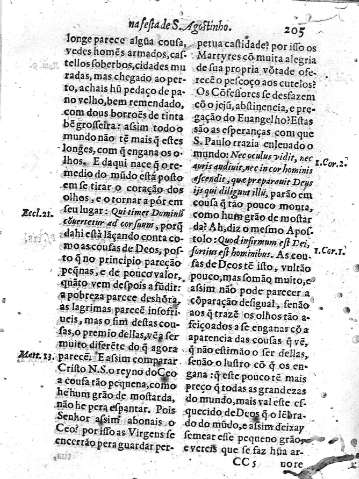 na festa de S. Agostinho.
205
longe parece algũa cousa,
vedes homẽs armados, cas-
tellos soberbos, cidades mu
radas, mas chegado ao per-
to, achais hũ pedaço de pa-
no velho, bem remendado,
com dous borroẽs de tinta
bẽ grosseira: assim todo o
mundo não tẽ mais q̃ estes
longes, com q̃ engana os o-
lhos. E daqui nace q̃ o re-
medio do mũdo está posto
em se tirar o coração dos
olhos, e o tornar a pór em
Eccl. 21.
seu lugar: Qui timet Dominũ
cõvertetur ad cor suum, porq̃
dahi está lãçando conta co-
mo as cousas de Deos, pos-
to q̃ no principio pareção
peq̃nas, e de pouco valor,
quãto vem despois a fũdir:
a pobreza parece deshõra,
as lagrimas parecẽ insofri-
ueis, mas o fim destas cou-
sas, o premio dellas, vẽ a ser
muito diferẽte do q̃ agora
Mat. 13.
parecẽ. E assim comparar
Cristo N. S. o reyno do Ceo
a cousa tão pequena, como
he hũ grão de mostarda,
não he pera espantar. Pois
Senhor assim abonais o
Ceo? por isso as Virgens se
encerrão pera guardar per-
petua castidade? por isso os
Martyres cõ muita alegria
de sua propria võtade ofe-
recẽ o pescoço aos cutelos?
Os Cõfessores se desfazem
cõ o jejũ, abstinencia, e pre-
gação do Euangelho? Estas
são as esperanças com que
S. Paulo trazia enleuado o
mundo: Nec oculus vidit, nec
1. Cor. 2.
auris audiuit, nec in cor hominis
ascendit, quæ præparauit Deus
ijs qui diligunt illũ, parão em
cousa q̃ tão pouco monta,
como hum grão de mostar
da? Ah, diz o mesmo Apos-
tolo: Quod infirmum est Dei,
1. Cor. 1.
fortius est hominibus. As cou-
sas de Deos tẽ isto, vultão
pouco, mas somão muito, e
assim não pode parecer a
cõparação desigual, senão
aos q̃ trazẽ os olhos tão a-
feiçoados a se enganar cõ a
aparencia das cousas q̃ vẽ,
q̃ não estimão o ser dellas,
senão o lustro cõ q̃ os en-
gana: q̃ este pouco tẽ mais
preço q̃ todas as grandezas
do mundo, mais val este es-
quecido de Deos q̃ o lẽbra-
do do mũdo, e assim deixay
semear esse pequeno grão,
e vereis que se faz hũa ar-
CC 5
uore